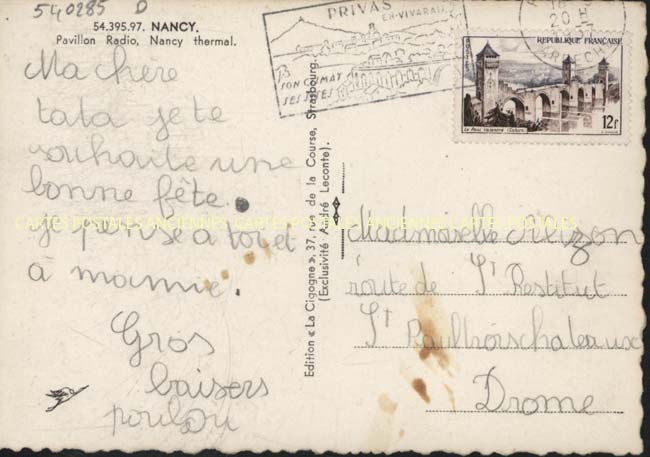 540285 D
54.395.97. NANCY.
Pavillon Radio, Nancy thermal.
Ma chère
tata je te
souhaite une
bonne fête.
je pense a toi et
à mamie.
Gros
baisers
poulou
Edition « La Cigogne », 37, rue de la Course, Strasbourg.
(Exclusivité André Leconte).
PRIVAS
EN VIVARAIS
SON CLIMAT
SES SITES
20 H
ARDECHE
REPUBLIQUE FRANÇAISE
Le Pont Valentré (Cahors)
12f
Madmaselle
route de St Restitut
St Paultroischateaux
Drome
CARTES POSTALES ANCIENNES CARTES POSTALES ANCIENNES CARTES POSTALES ANCIENNES